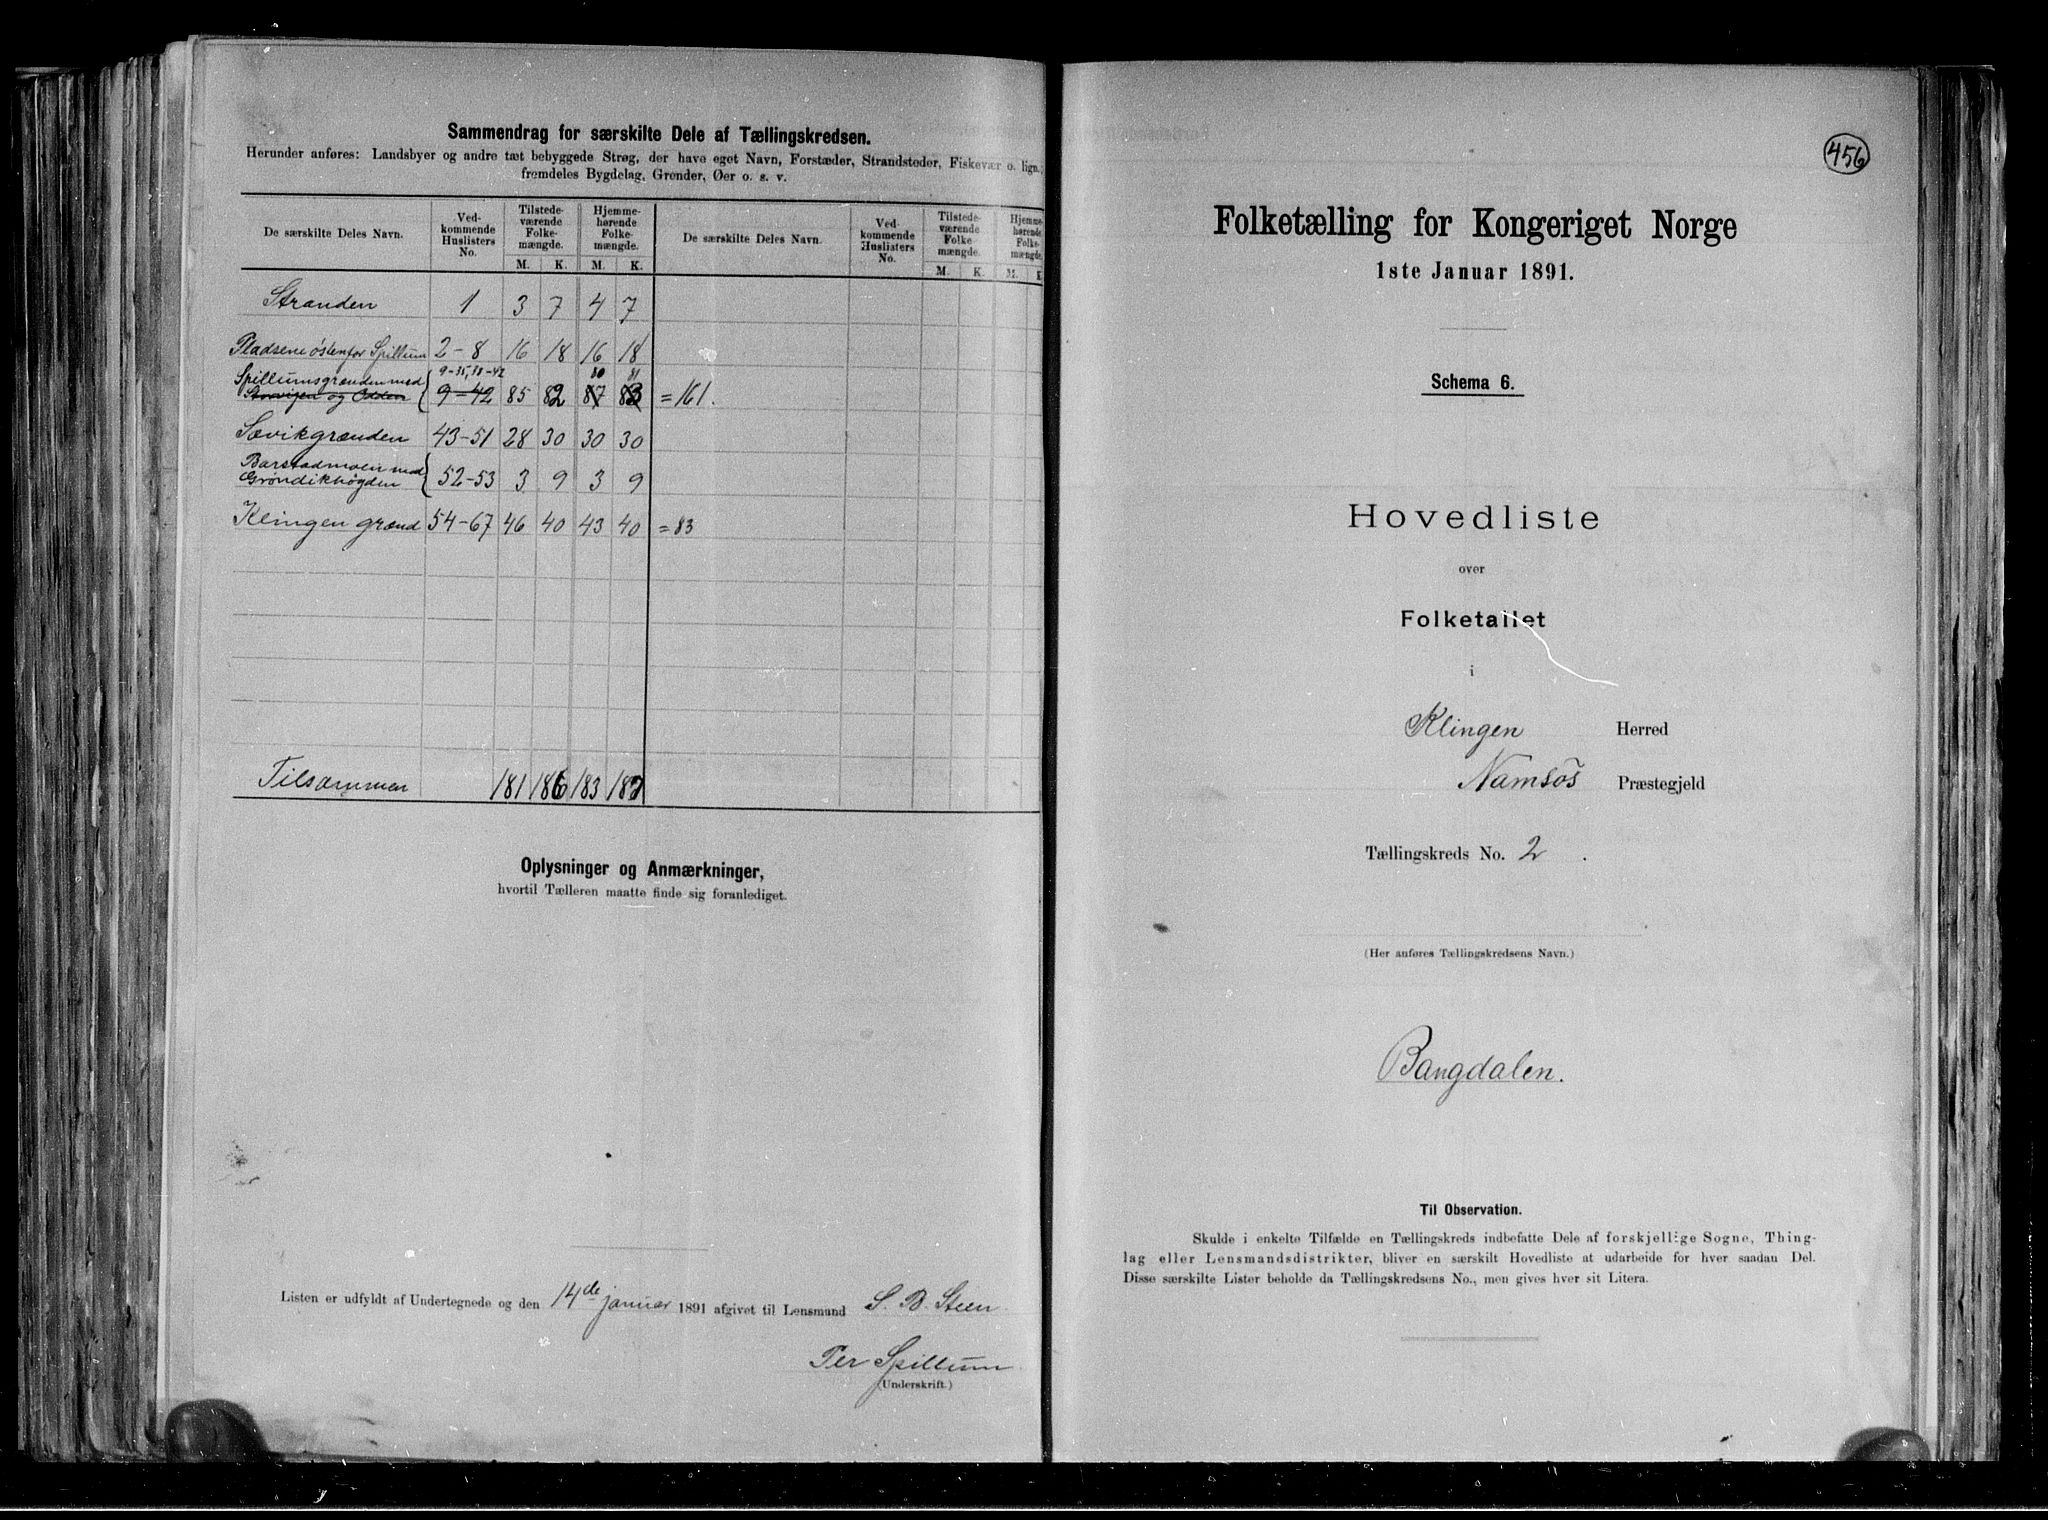 Sammendrag for særskilte Dele af Tællingskredsen.
Herunder anføres: Landsbyer og andre tæt bebyggede Strøg, der have eget Navn, Forstæder, Strandsteder, Fiskevær o. lign.,
fremdeles Bygdelag, Grender, Øer o. s. v.
De særskilte Deles Navn. Ved-kommende Huslisters No. Tilstede-værende Folke-mængde. Hjemme-hørende Folke-mængde. De særskilte Deles Navn. Ved-kommende Huslisters No. Tilstede-værende Folke-mængde. Hjemme-hørende Folke-mængde.
M. K. M. K. M. K. M. K
Stranden 1 3 7 4 7
Pladsene östenfor Spillum 2-8 16 18 16 18
9-35, 38-42 80 81
Spillumsgrænden med
Storvigen og Odden 9-42 85 82 87 83 = 161.
Sævikgrænden 43-51 28 30 30 30
Barstadmoen med
Grøndikhögden 52-53 3 9 3 9
Klingen grænd 54-67 46 40 43 40 = 83
Tilsammen 181 186 183 187
Oplysninger og Anmærkninger,
hvortil Tælleren maatte finde sig foranlediget.
Listen er udfyldt af Undertegnede og den 14de januar 1891 afgivet til Lensmand S. B. Steen.
Per Spillum
(Underskrift.)
456
Folketælling for Kongeriget Norge
1ste Januar 1891.
Schema 6.
Hovedliste
over
Folketallet
i
Klingen Herred
Namsos Præstegjeld
Tællingskreds No. 2.
(Her anføres Tællingskredsens Navn.)
Bangdalen.
Til Observation.
Skulde i enkelte Tilfælde en Tællingskreds indbefatte Dele af forskjellige Sogne, Thing-
lag eller Lensmandsdistrikter, bliver en særskilt Hovedliste at udarbeide for hver saadan Del.
Disse særskilte Lister beholde da Tællingskredsens No., men gives hver sit Litera.